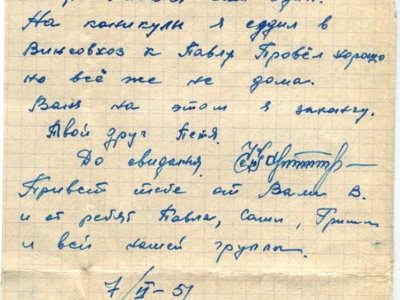 На каникулы я ездил в
Винсовхоз к Павлу Провёл хорошо
но всё же не дома.
Ваня на этом я закончу.
Твой друг Петя.
До свидания
Привет тебе от Вани В.
и от ребят Павла, Саши, Гриши
и всей нашей группы.
7/II-51